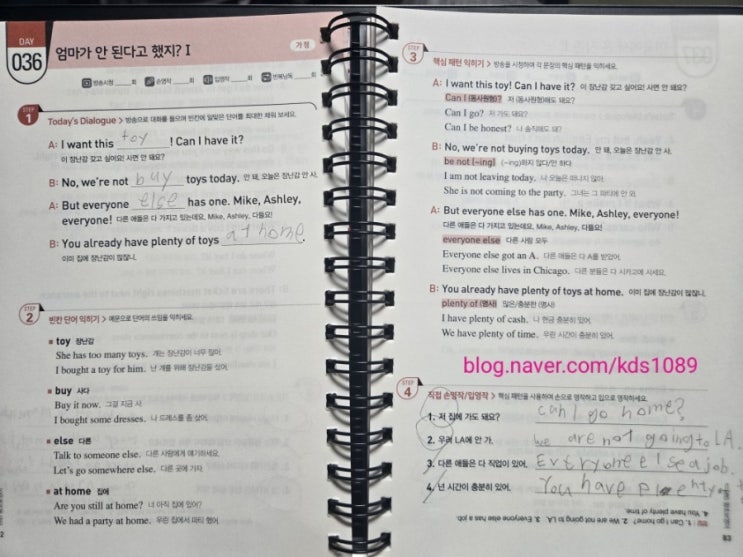 DAY
036
엄마가 안 된다고 했지? I
가정
방송시청 ____회
손영작 ____회
입영작 ____회
반복낭독 ____회
STEP 1
Today's Dialogue > 방송으로 대화를 들으며 빈칸에 알맞은 단어를 최대한 채워 보세요.
A: I want this toy! Can I have it?
이 장난감 갖고 싶어요! 사면 안 돼요?
B: No, we're not buy toys today. 안 돼, 오늘은 장난감 안 사.
A: But everyone else has one. Mike, Ashley,
everyone! 다른 애들은 다 가지고 있는데요. Mike, Ashley, 다들요!
B: You already have plenty of toys at home.
이미 집에 장난감이 많잖니.
STEP 2
빈칸 단어 익히기 > 예문으로 단어의 쓰임을 익히세요.
toy 장난감
She has too many toys. 걔는 장난감이 너무 많아.
I bought a toy for him. 난 걔를 위해 장난감을 샀어.
buy 사다
Buy it now. 그걸 지금 사.
I bought some dresses. 나 드레스를 좀 샀어.
else 다른
Talk to someone else. 다른 사람에게 얘기하세요.
Let's go somewhere else. 다른 곳에 가자.
at home 집에
Are you still at home? 너 아직 집에 있어?
We had a party at home. 우린 집에서 파티 했어.
STEP 3
핵심 패턴 익히기 > 방송을 시청하며 각 문장의 핵심 패턴을 익히세요.
A: I want this toy! Can I have it? 이 장난감 갖고 싶어요! 사면 안 돼요?
Can I (동사원형)? 저 (동사원형)해도 돼요?
Can I go? 저 가도 돼요?
Can I be honest? 나 솔직해도 돼?
B: No, we're not buying toys today. 안 돼, 오늘은 장난감 안 사.
be not (~ing) (~ing)하지 않다/안 하다
I am not leaving today. 나 오늘은 떠나지 않아.
She is not coming to the party. 그녀는 그 파티에 안 와.
A: But everyone else has one. Mike, Ashley, everyone!
다른 애들은 다 가지고 있는데요. Mike, Ashley, 다들요!
everyone else 다른 사람 모두
Everyone else got an A. 다른 애들은 다 A를 받았어.
Everyone else lives in Chicago. 다른 분들은 다 시카고에 사세요.
B: You already have plenty of toys at home. 이미 집에 장난감이 많잖니.
plenty of (명사) 많은/충분한 (명사)
I have plenty of cash. 나 현금 충분히 있어.
We have plenty of time. 우린 시간이 충분히 있어.
blog.naver.com/kds1089
STEP 4
직접 손영작/입영작 > 핵심 패턴을 사용하여 손으로 영작하고 입으로 영작하세요.
1. 저 집에 가도 돼요? can I go home?
2. 우린 LA에 안 가. we are not going to LA.
3. 다른 애들은 다 직업이 있어. Everyone else a job.
4. 넌 시간이 충분히 있어. You have plenty
1. Can I go home? 2. We are not going to LA. 3. Everyone else has a job.
4. You have plenty of time.
2
83